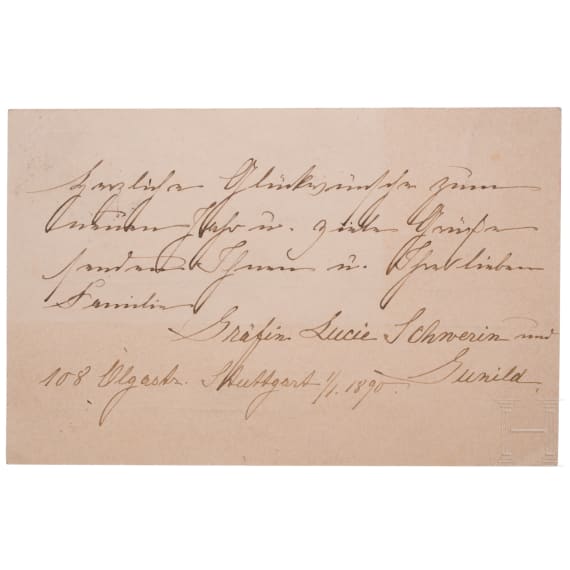 Herzliche Glückwünsche zum
neuen Jahr u. viele Grüße
senden Ihnen u. Ihrer lieben
Familie
Gräfin Lucie Schwerin und
108 Olgastr. Stuttgart 1/1. 1890. Gunild.